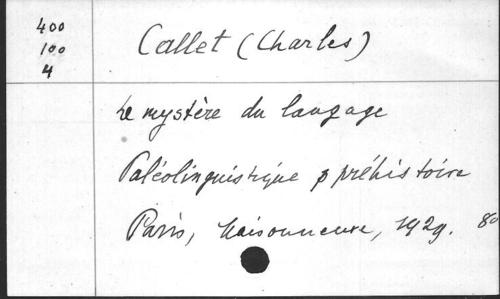 400
100
4
Callet (Charles)
Le mystère du langage
Paléolinguistique préhistoire
Paris, Maisonneuve, 1929. 80